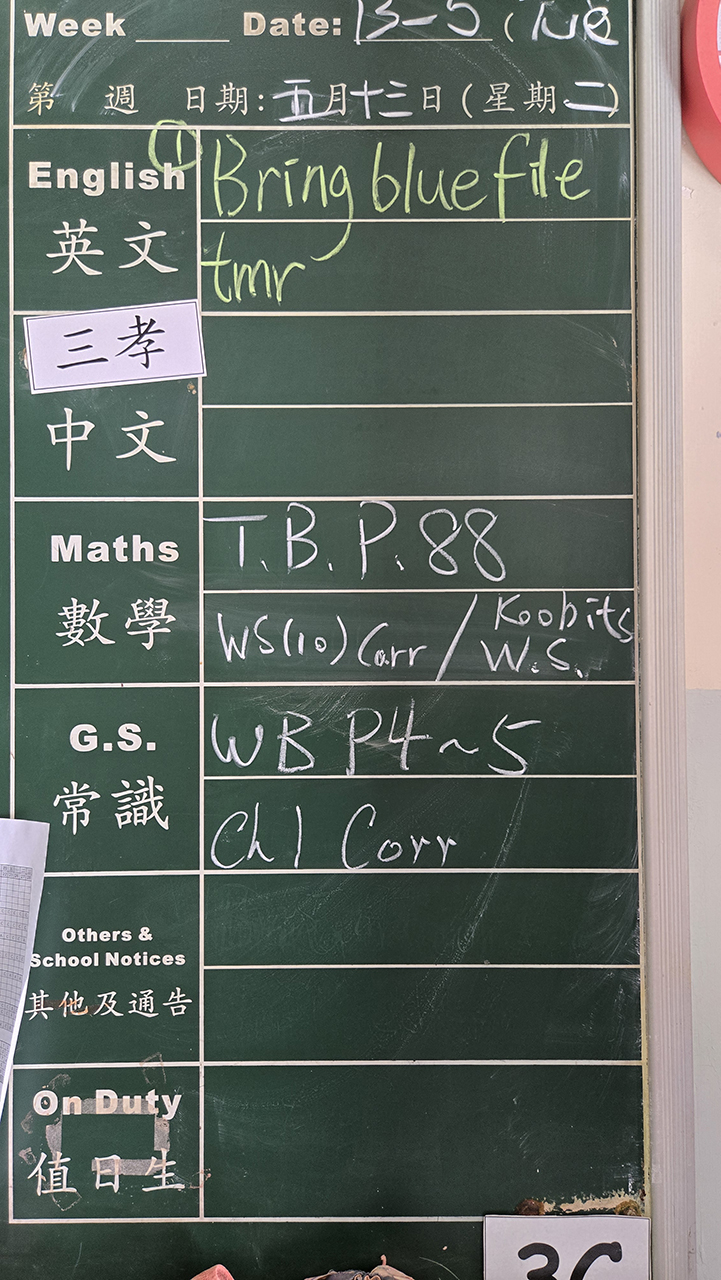 Week ____ Date: 13-5 (Tue
第 週 日期: 五月十三日 (星期二)
English ① Bring blue file
英文 tmr
三孝
中文
Maths T.B. P. 88
數學 WS(10) Corr / Koobits W.S.
G.S. WB P4~5
常識 Ch1 Corr
Others &
School Notices
其他及通告
On Duty
值日生
3C